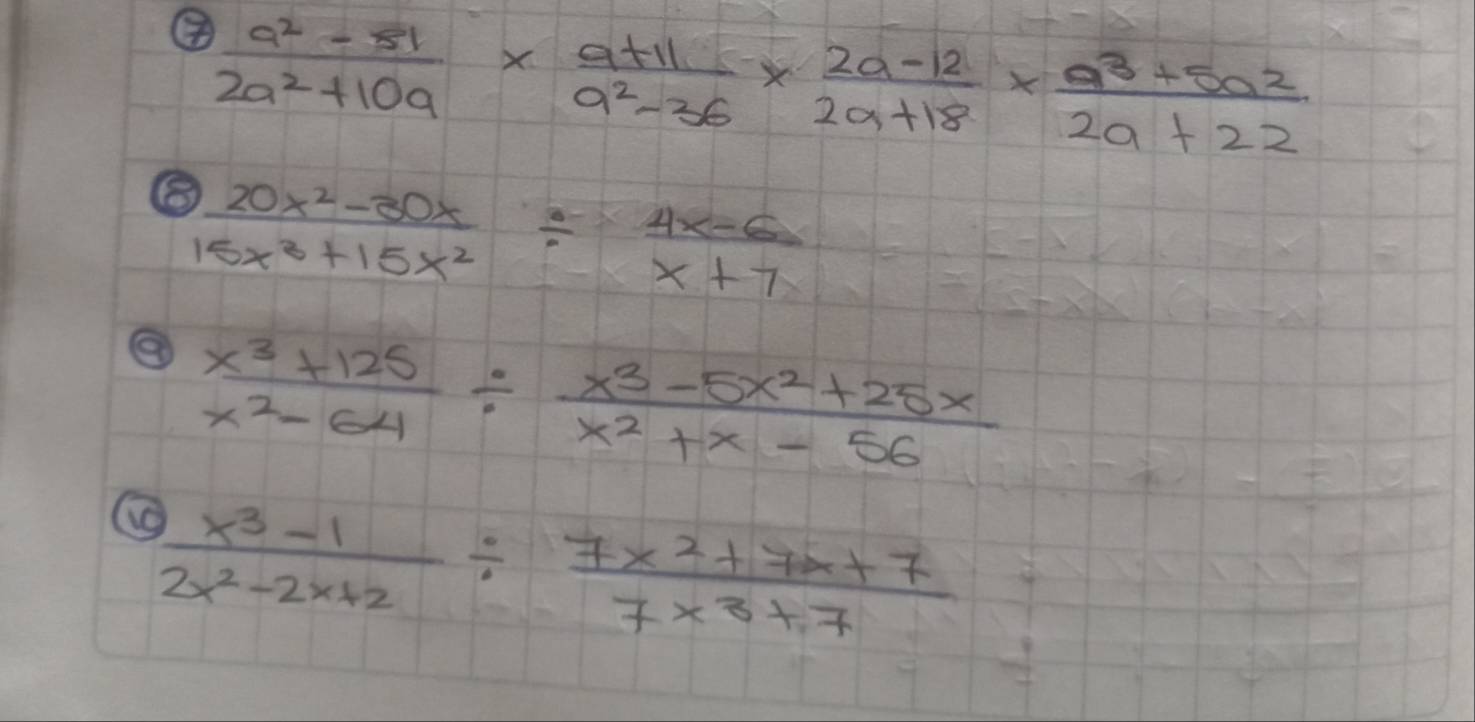 ⑦ (a² - 81)/(2a² + 10a) × (a + 11)/(a² - 36) × (2a - 12)/(2a + 18) × (a³ + 5a²)/(2a + 22)
⑧ (20x² - 30x)/(15x³ + 15x²) ÷ (4x - 6)/(x + 7)
⑨ (x³ + 125)/(x² - 64) ÷ (x³ - 5x² + 25x)/(x² + x - 56)
⑩ (x³ - 1)/(2x² - 2x + 2) ÷ (7x² + 7x + 7)/(7x³ + 7)